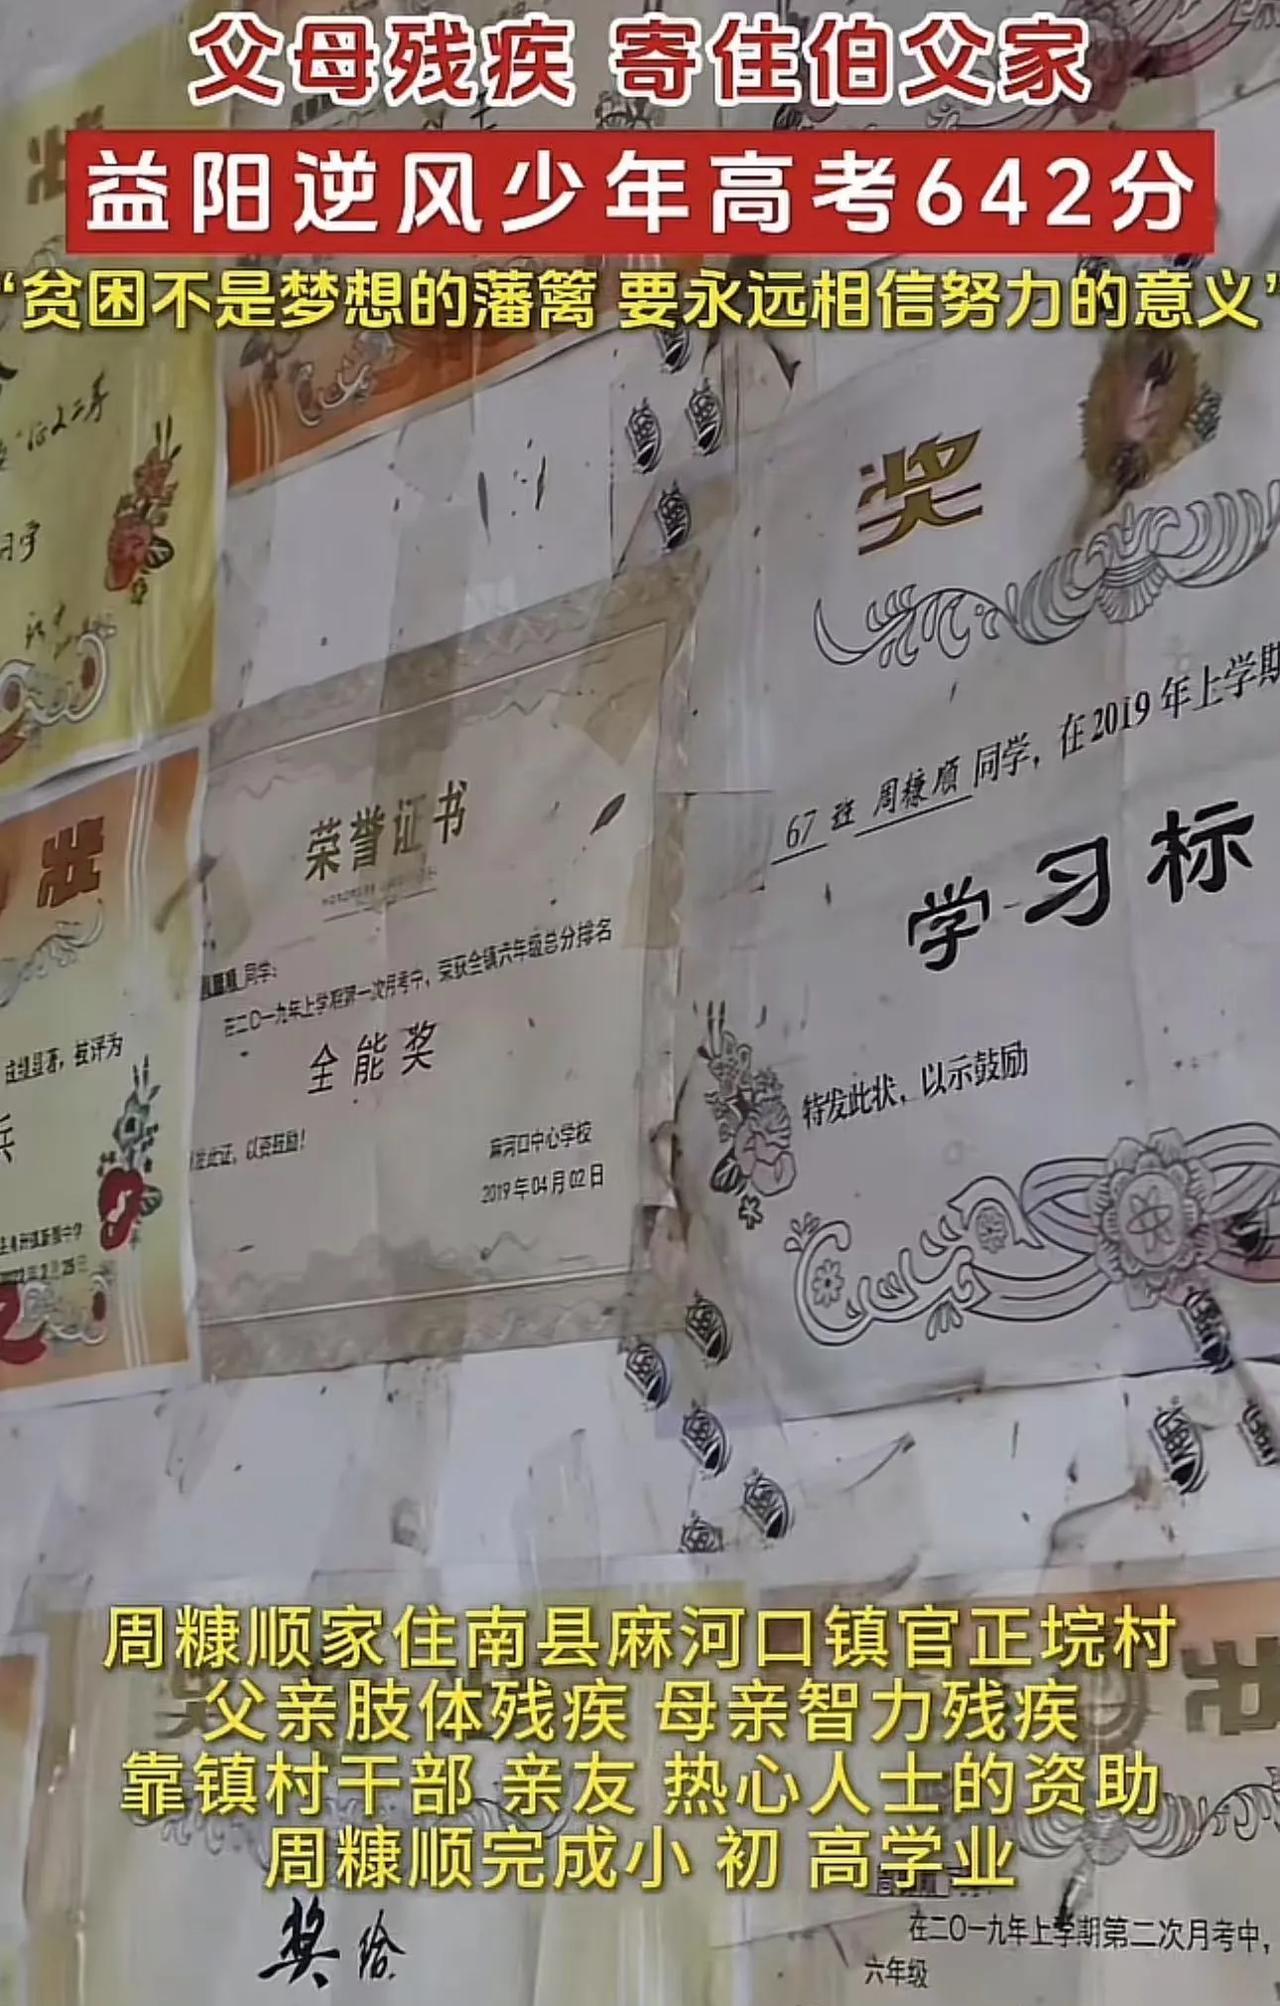 父母残疾 寄住伯父家
益阳逆风少年高考642分
“贫困不是梦想的藩篱 要永远相信努力的意义”
状
奖
67 班 周糠顺 同学，在2019年上学期
学习标
特发此状，以示鼓励
荣誉证书
同学：
在二〇一九年上学期第一次月考中，荣获全镇六年级总分排名
全能奖
此证，以资鼓励！
麻河口中心学校
2019年04月02日
状
成绩显著，被评为
兵
周糠顺家住南县麻河口镇官正垸村
父亲肢体残疾 母亲智力残疾
靠镇村干部 亲友 热心人士的资助
周糠顺完成小 初 高学业
奖
状
奖给
在二〇一九年上学期第二次月考中，
六年级